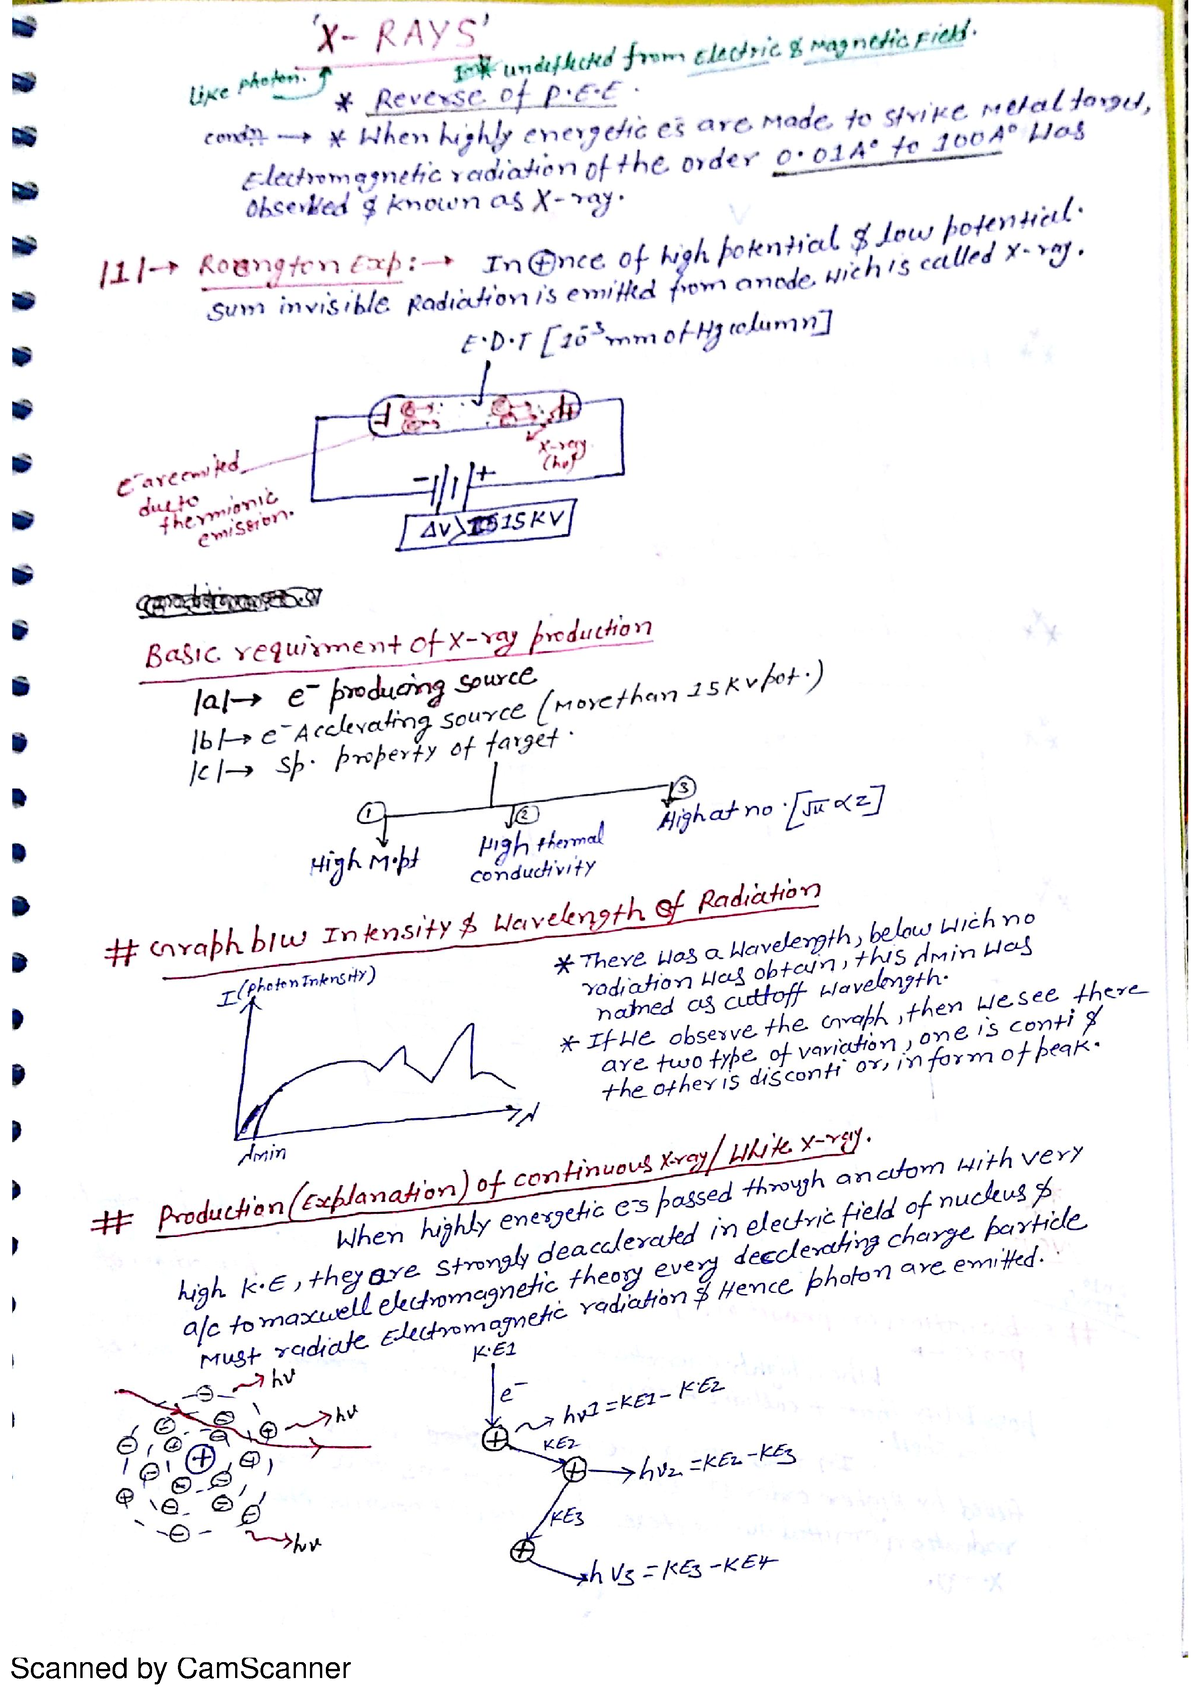 'X-RAYS'
Like photon.
* undeflected from Electric & Magnetic Field.
* Reverse of P.E.E.
condn → * When highly energetic e⁻s are made to strike metal target,
Electromagnetic radiation of the order 0.01A° to 100A° was
observed & known as X-ray.
|1|→ Roengton Exp:→ In ⊕nce of high potential & low potential.
sum invisible Radiation is emitted from anode, wich is called X-ray.
E.D.T [10⁻³mm of Hg column]
X-ray
(hν)
e⁻ are emited
due to
thermionic
emission.
- +
ΔV > 15KV
Basic requirment of X-ray production
|a|→ e⁻ producing source
|b|→ e⁻ Acclerating source (More than 15KV pot.)
|c|→ sp. property of target.
① ② ③
High M.pt
High thermal
conductivity
High at no. [√ν ∝ z]
# Graph b/w Intensity & Wavelength of Radiation
I (photon Intensity)
λ
λmin
* There was a wavelength, below wich no
radiation was obtain, this λmin was
named as cuttoff wavelength.
* If we observe the Graph, then we see there
are two type of variation, one is conti &
the other is disconti or, in form of peak.
# Production (Explanation) of continuous X-ray/White X-ray.
When highly energetic e⁻s passed through an atom with very
high K.E, they are strongly deacclerated in electric field of nucleus &
a/c to maxwell electromagnetic theory every decclerating charge particle
Must radiate Electromagnetic radiation & Hence photon are emitted.
hν
hν
hν
K.E1
e⁻
hν1 = KE1 - K.E2
KE2
hν2 = KE2 - KE3
KE3
hν3 = KE3 - KE4
Scanned by CamScanner